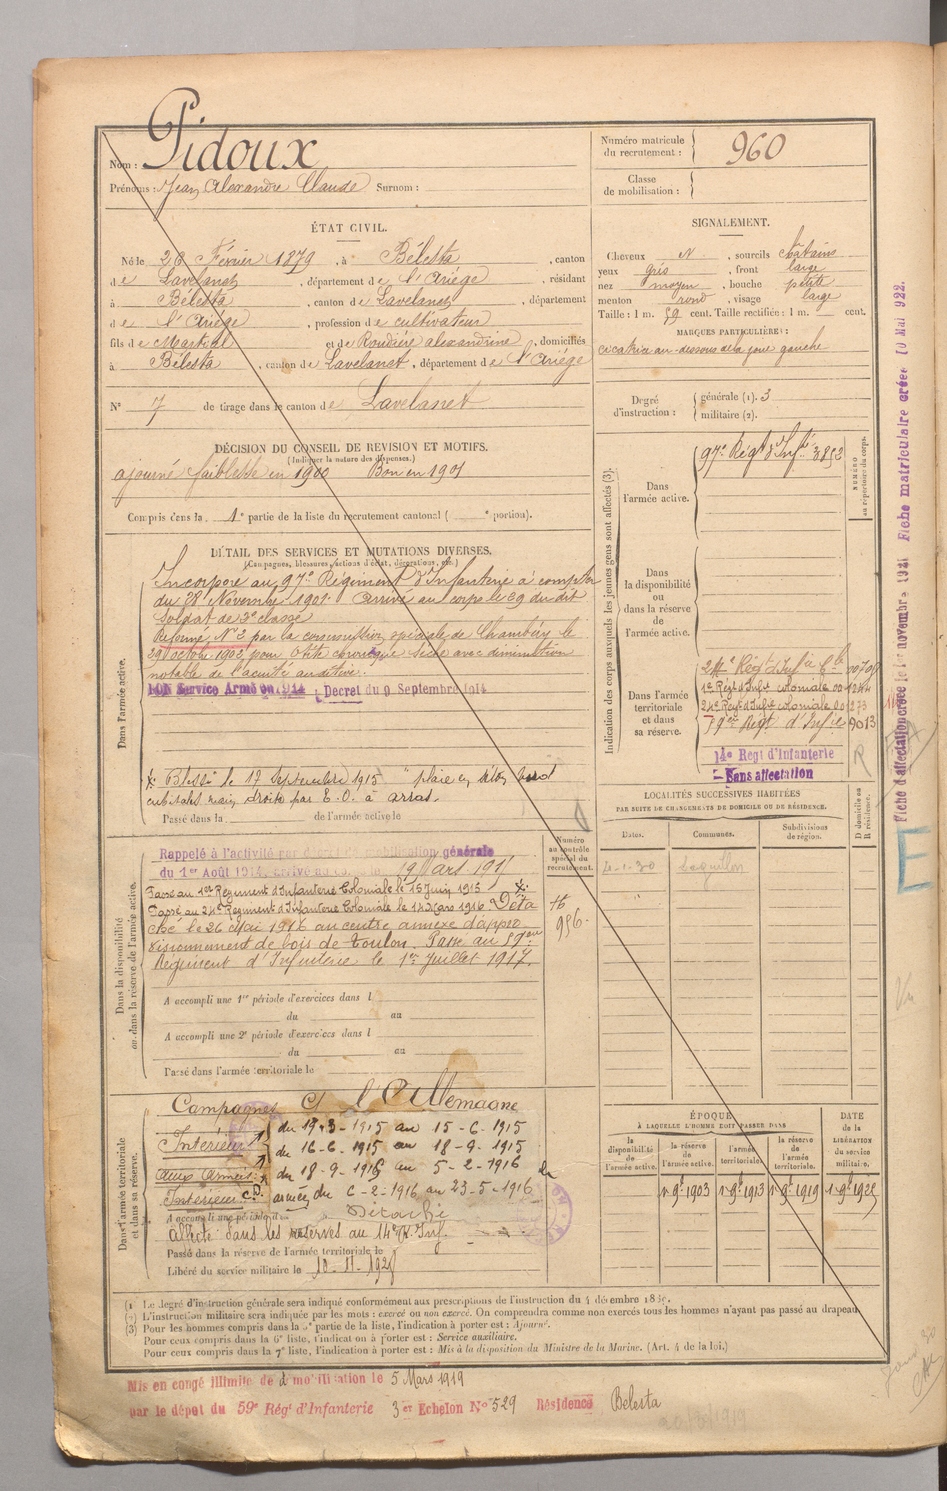 Nom : Pidoux
Prénoms : Jean Alexandre Claude Surnom :
Numéro matricule du recrutement : 960
Classe de mobilisation :
ÉTAT CIVIL.
Né le 26 Février 1879, à Bélesta, canton
de Lavelanet, département de l'Ariége, résidant
à Bélesta, canton de Lavelanet, département
de l'Ariége, profession de cultivateur
fils de Martial et de Roudière alexandrine, domiciliés
à Bélesta, canton de Lavelanet, département de l'Ariége
N° 7 de tirage dans le canton de Lavelanet
SIGNALEMENT.
Cheveux N, sourcils Chatains
yeux gris, front large
nez moyen, bouche petite
menton rond, visage large
Taille : 1 m. 59 cent. Taille rectifiée : 1 m. cent.
MARQUES PARTICULIÈRES :
cicatrice au-dessous de la joue gauche
Degré d'instruction : générale (1). 3
militaire (2).
DÉCISION DU CONSEIL DE REVISION ET MOTIFS.
(Indiquer la nature des dispenses.)
ajourné faiblesse en 1900 Bon en 1901
Compris dans la 1e partie de la liste du recrutement cantonal ( e portion).
DÉTAIL DES SERVICES ET MUTATIONS DIVERSES.
(Campagnes, blessures, actions d'éclat, décorations, etc.)
Dans l'armée active.
Incorporé au 97e Régiment d'Infanterie à compter
du 28 Novembre 1901. Arrivé au corps le 29 du dit
Soldat de 2e classe
Réformé N° 2 par la commission spéciale de Chambéry le
29 octob. 1902, pour Otite chronique sèche avec diminution
notable de l'acuité auditive.
BON Service Armé en 1914 Décret du 9 Septembre 1914
Blessé le 17 Septembre 1915 "plaie
cubitales main droite par E. O. à arras.
Passé dans la de l'armée active le
Indication des corps auxquels les jeunes gens sont affectés (3).
NUMÉRO au répertoire du corps.
Dans l'armée active.
97e Régt d'Infie 3852
Dans la disponibilité ou dans la réserve de l'armée active.
Dans l'armée territoriale et dans sa réserve.
1er Régt d'Infie coloniale
24e Régt d'Infie coloniale
59er Régt d'Infie 9013
14e Regt d'Infanterie
Sans affectation
R
LOCALITÉS SUCCESSIVES HABITÉES
PAR SUITE DE CHANGEMENTS DE DOMICILE OU DE RÉSIDENCE.
D domicile ou R résidence.
Dates. Communes. Subdivisions de région.
4-1-30
Dans la disponibilité ou dans la réserve de l'armée active.
Numéro au contrôle spécial du recrutement.
Rappelé à l'activité par décret de mobilisation générale
du 1er Août 1914, arrivé au corps 19 Mars 1915
Passé au 1er Régiment d'Infanterie Coloniale le 15 Juin 1915
Passé au 24e Régiment d'Infanterie Coloniale le 14 Mars 1916. Déta
ché le 26 Mai 1916 au centre annexe d'appro
visionnement de bois de Toulon. Passé au 59eme
Régiment d'Infanterie le 1er Juillet 1917.
956
A accompli une 1re période d'exercices dans l
du au
A accompli une 2e période d'exercices dans l
du au
Passé dans l'armée territoriale le
Dans l'armée territoriale et dans sa réserve.
Campagnes C/ l'Allemagne
Intérieur du 19-3-1915 au 15-6-1915
du 16-6-1915 au 18-9-1915
aux Armées du 18-9-1915 au 5-2-1916
Intérieur C.D. armées du 6-2-1916 au 23-5-1916
A accompli une période d Détaché
affecté dans les réserves au 14e R. Inf.
Passé dans la réserve de l'armée territoriale le
Libéré du service militaire le 10-11-1928
ÉPOQUE
À LAQUELLE L'HOMME DOIT PASSER DANS
la disponibilité de l'armée active. la réserve de l'armée active. l'armée territoriale. la réserve de l'armée territoriale.
DATE de la LIBÉRATION du service militaire.
1er 9bre 1903 1er 9bre 1913 1er 9bre 1919 1er 9bre 1925
(1) Le degré d'instruction générale sera indiqué conformément aux prescriptions de l'instruction du 4 décembre 1889.
(2) L'instruction militaire sera indiquée par les mots : exercé ou non exercé. On comprendra comme non exercés tous les hommes n'ayant pas passé au drapeau
(3) Pour les hommes compris dans la 5e partie de la liste, l'indication à porter est : Ajourné.
Pour ceux compris dans la 6e liste, l'indication à porter est : Service auxiliaire.
Pour ceux compris dans la 7e liste, l'indication à porter est : Mis à la disposition du Ministre de la Marine. (Art. 4 de la loi.)
Mis en congé illimité de démobilisation le 5 Mars 1919
par le dépôt du 59e Régt d'Infanterie 3e Echelon N° 529 Résidence Bélesta
Fiche d'affectation créée le 1er novembre 1921 Fiche matriculaire créée 10 Mai 1922.